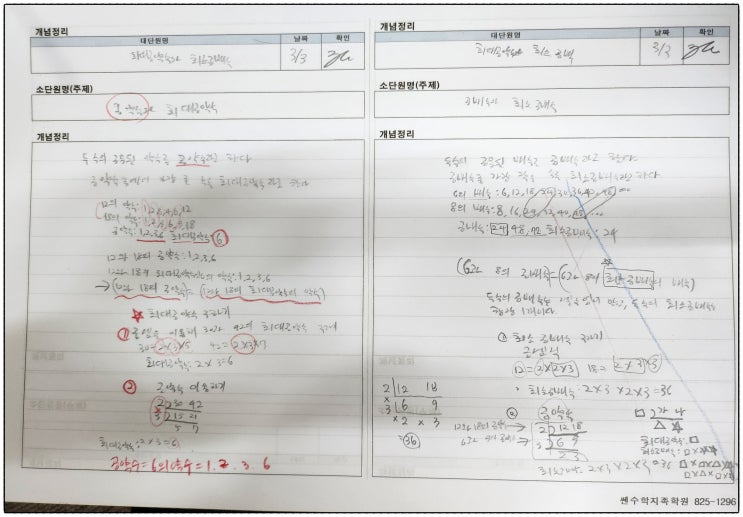 개념정리
대단원명
날짜
확인
최대공약수와 최소공배수
3/3
소단원명(주제)
공약수와 최대공약수
개념정리
두수의 공통된 약수를 공약수라고 한다
공약수 중에서 가장 큰 수를 최대공약수라고 한다
12의 약수: 1,2,3,4,6,12
18의 약수: 1,2,3,6,9,18
공약수: 1,2,3,6 최대공약수: 6
12과 18의 공약수: 1,2,3,6
12과 18의 최대공약수의 약수: 1,2,3,6
→ (12과 18의 공약수) = (12과 18의 최대공약수의 약수)
☆ 최대공약수 구하기
① 곱셈식 이용해 30과 42의 최대공약수 구하기
30=2×3×5 42=2×3×7
최대공약수: 2×3=6
② 공약수 이용하기
2 30 42
3 15 21
5 7
최대공약수: 2×3=6
공약수=6의 약수=1, 2, 3, 6
개념정리
대단원명
날짜
확인
최대공약수와 최소공배
소단원명(주제)
공배수와 최소공배수
개념정리
두수의 공통된 배수를 공배수라고 한다
공배수중 가장 작은 수를 최소공배수라고 한다
6의 배수: 6,12,18,24,30,36,42,48, ...
8의 배수: 8,16,24,32,40,48, ...
공배수: 24, 48, 72 최소공배수: 24
(6과 8의 공배수) = (6과 8의 최소공배수의 배수)
① 최소공배수 구하기
곱셈식
12=2×2×3 18=2×3×3
최소공배수: 2×3×2×3=36
2 12 18
×
3 6 9
× 2 × 3
=36
② 공약수
2 12 18
3 6 9
2 3
최대공약수: □
최소공배수: 2×3×2×3=36
쎈수학지족학원 825-1296